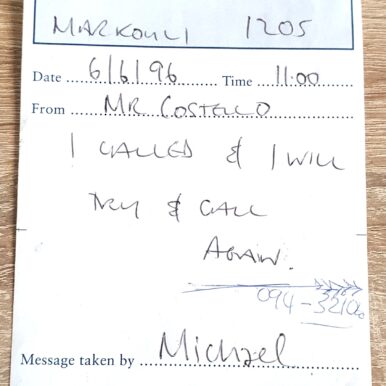 MARKOULI 1205
Date 6/6/96 Time 11:00
From MR COSTELLO
I CALLED & I WILL
TRY & CALL
AGAIN.
094-
Message taken by Michael